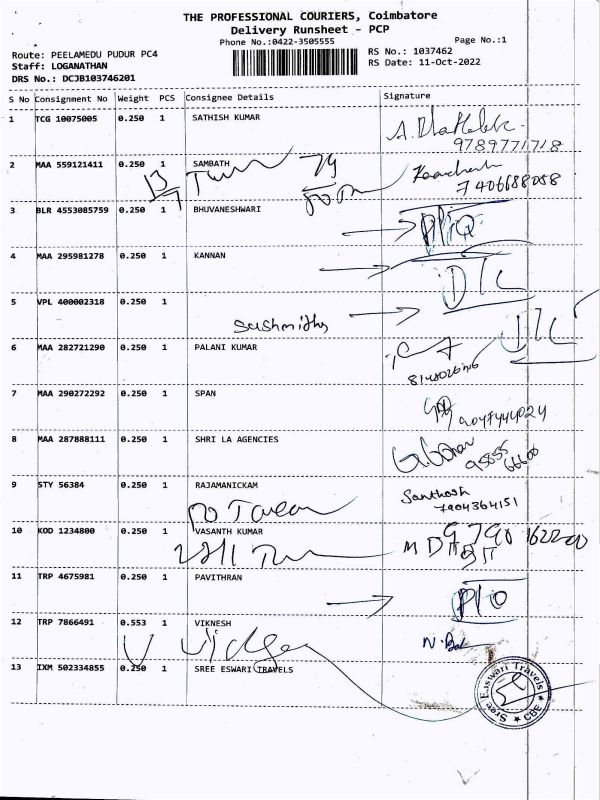 THE PROFESSIONAL COURIERS, Coimbatore
Delivery Runsheet - PCP
Phone No.:0422-3505555 Page No.:1
Route: PEELAMEDU PUDUR PC4 RS No.: 1037462
Staff: LOGANATHAN RS Date: 11-Oct-2022
DRS No.: DCJB103746201
S No Consignment No Weight PCS Consignee Details Signature
1 TCG 10075005 0.250 1 SATHISH KUMAR
9789771718
2 MAA 559121411 0.250 1 SAMBATH
7406688058
3 BLR 4553085759 0.250 1 BHUVANESHWARI
4 MAA 295981278 0.250 1 KANNAN
D/C
5 VPL 400002318 0.250 1
Sushmitha D/C
6 MAA 282721290 0.250 1 PALANI KUMAR
7 MAA 290272292 0.250 1 SPAN
9047444024
8 MAA 287888111 0.250 1 SHRI LA AGENCIES
95855 66600
9 STY 56384 0.250 1 RAJAMANICKAM
Santhosh
7904364151
10 KOD 1234800 0.250 1 VASANTH KUMAR
11 TRP 4675981 0.250 1 PAVITHRAN
P/O
12 TRP 7866491 0.553 1 VIKNESH
13 IXM 502334855 0.250 1 SREE ESWARI TRAVELS
Sree Easwari Travels
★ CBE ★